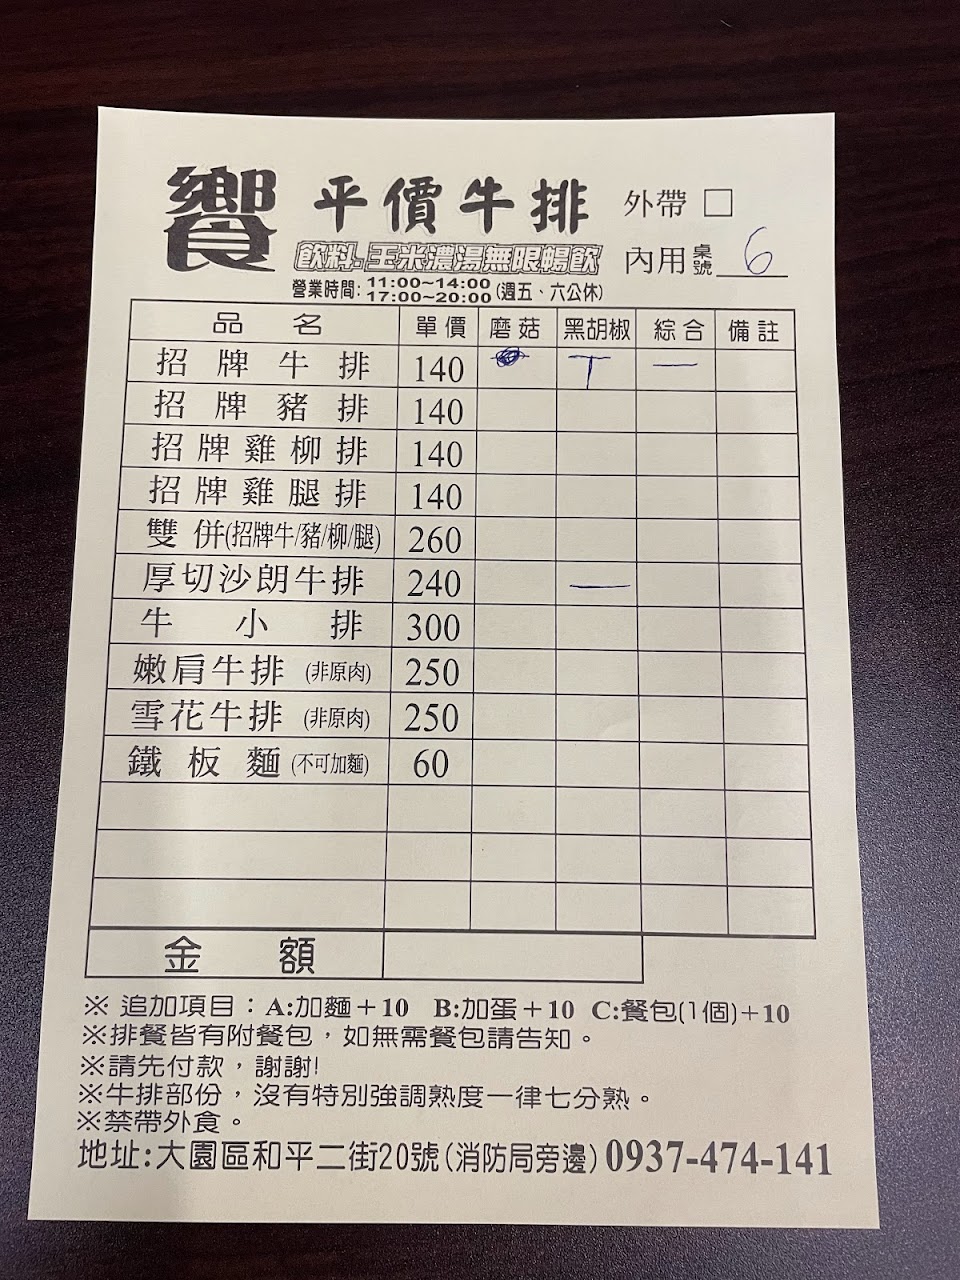 饗 平價牛排 外帶 □
飲料.玉米濃湯無限暢飲 內用 桌號 6
營業時間: 11:00~14:00 17:00~20:00 (週五、六公休)
品名 單價 磨菇 黑胡椒 綜合 備註
招牌牛排 140 丅 一
招牌豬排 140
招牌雞柳排 140
招牌雞腿排 140
雙併(招牌牛/豬/柳/腿) 260
厚切沙朗牛排 240 一
牛小排 300
嫩肩牛排 (非原肉) 250
雪花牛排 (非原肉) 250
鐵板麵 (不可加麵) 60
金額
※ 追加項目：A:加麵＋10 B:加蛋＋10 C:餐包(1個)＋10
※排餐皆有附餐包，如無需餐包請告知。
※請先付款，謝謝!
※牛排部份，沒有特別強調熟度一律七分熟。
※禁帶外食。
地址:大園區和平二街20號(消防局旁邊) 0937-474-141